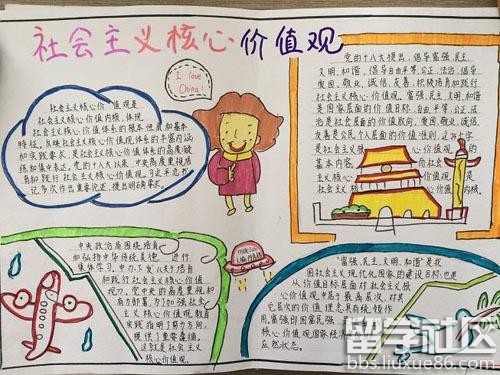 社会主义核心价值观
I love
China!
社会主义核心价值观是
社会主义核心价值内核,体现
社会主义核心价值体系的根本性质和基本
特征,反映社会主义核心价值观体系的丰富内涵
和实践要求,是社会主义核心价值体系的高度凝
练和集中表达。党的十八大以来,中央高度重视培
育和践行社会主义核心价值观。习近平总书
记多次作出重要论述、提出明确要求。
党的十八大提出,倡导富强、民主、
文明、和谐,倡导自由、平等、公正、法治,倡导
爱国、敬业、诚信、友善,积极培育和践行
社会主义核心价值观。富强、民主、文明、和谐
是国家层面的价值目标,自由、平等、公正、法
治是社会层面的价值取向,爱国、敬业、诚信、
友善是公民个人层面的价值准则,这24个字
是社会主义核心价值观的
基本内容
中央政治局围绕培育
和弘扬中华传统美德 进行
集体学习。中办下发《关于培育
和践行社会主义核心价值
观》。党中央的高度重视和
有力部署,为加强社会
主义核心价值观教育
实践指明了努力方向,
提供了重要遵循。
这就是社会主义
核心价值观。
"富强、民主、文明、和谐"是我
国社会主义现代化国家的建设目标,也是
从价值目标层面对社会主义核
心价值观中居于最高层次,对其
它层次的价值理念具有统领作
用。富强即国富民强,是
核心价值观国家经济
应然状态。
留学社区
bbs.liuxue86.com